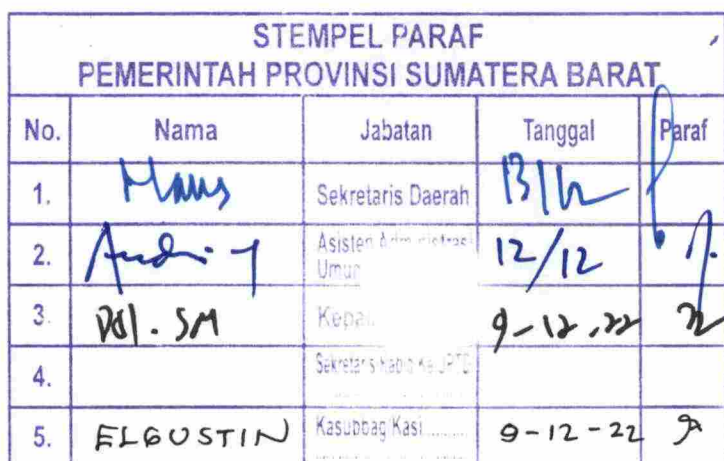 STEMPEL PARAF
PEMERINTAH PROVINSI SUMATERA BARAT
No. Nama Jabatan Tanggal Paraf
1. Sekretaris Daerah 13/12
2. Asisten Administrasi 12/12
Umum
3. 9-12-22
4. Sekretaris
5. ELGUSTIN Kasubbag Kasi 9-12-22